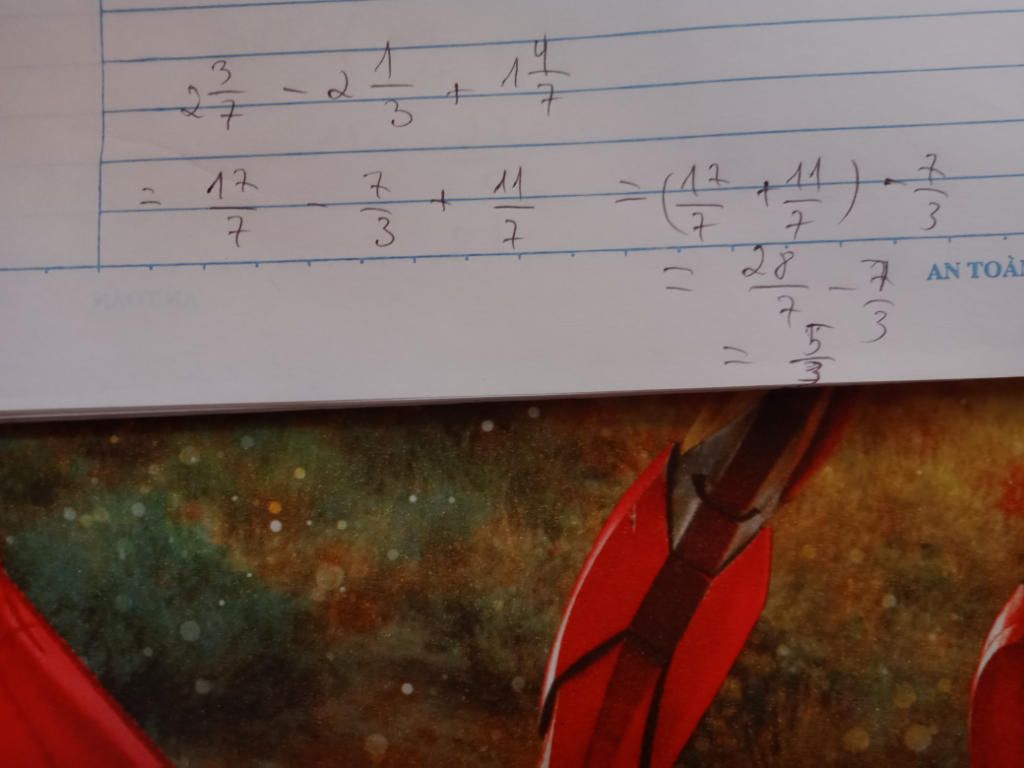 2 3/7 - 2 1/3 + 1 4/7
= 17/7 - 7/3 + 11/7 = (17/7 + 11/7) - 7/3
= 28/7 - 7/3
AN TOÀN
= 5/3